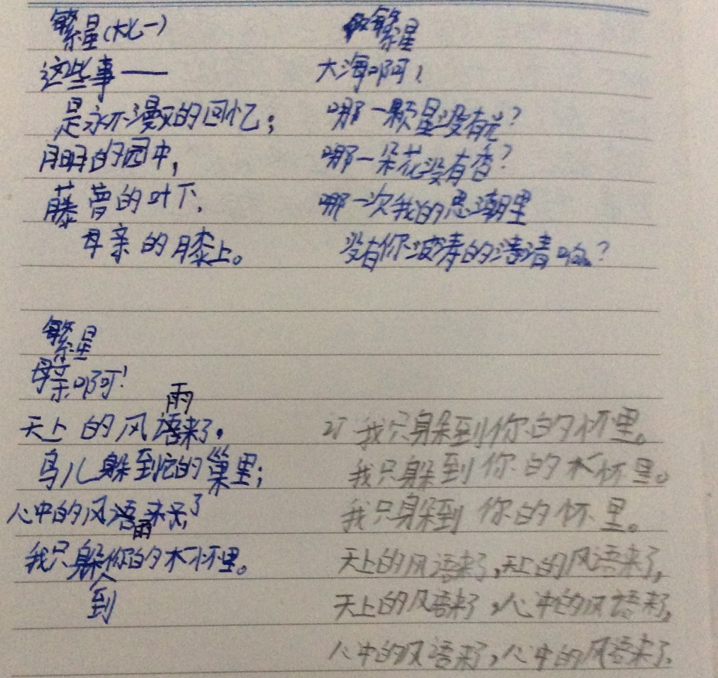 繁星
这些事——
是永不漫的回忆；
月明的园中，
藤萝的叶下，
母亲的膝上。
繁星
大海啊！
哪一颗星没有光？
哪一朵花没有香？
哪一次我的思潮里
没有你波涛的清响？
繁星
母亲啊！
雨
天上的风语来了。
鸟儿躲到它的巢里；
心中的风语来了
雨
我只躲你的怀里。
到
订 我只躲到你的怀里。
我只躲到你的怀里。
我只躲到你的怀里。
天上的风语来了，天上的风语来了，
天上的风语来了，心中的风语来了，
心中的风语来了，心中的风语来了，